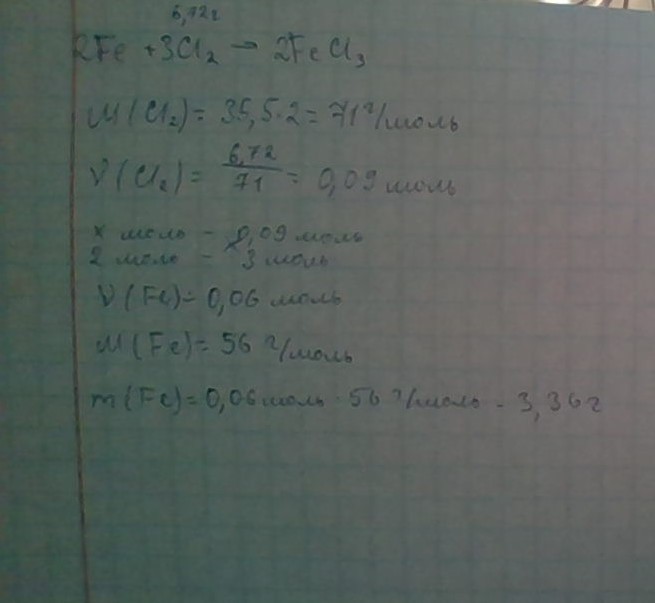 6,72г
2Fe + 3Cl₂ → 2FeCl₃
M(Cl₂) = 35,5·2 = 71 г/моль
ν(Cl₂) = 6,72/71 = 0,09 моль
x моль - 0,09 моль
2 моль - 3 моль
ν(Fe) = 0,06 моль
M(Fe) = 56 г/моль
m(Fe) = 0,06 моль · 56 г/моль - 3,36 г